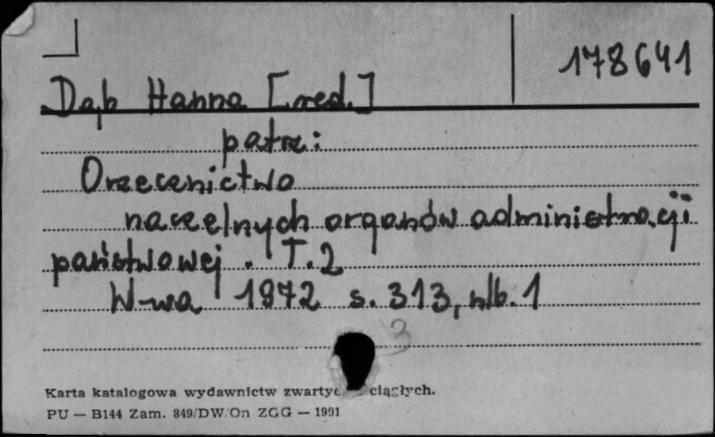 178641
Dąb Hanna [red.]
patrz:
Orzecznictwo
naczelnych organów administracji
państwowej. T.2
W-wa 1972 s. 313, nlb. 1
3
Karta katalogowa wydawnictw ciągłych.
PU — B144 Zam. 849/DW/On ZGG — 1991